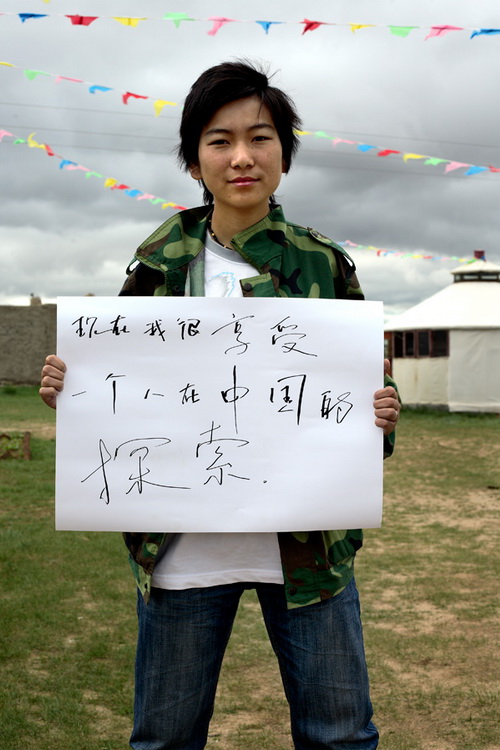 现在我很享受
一个人在中国的
探索.